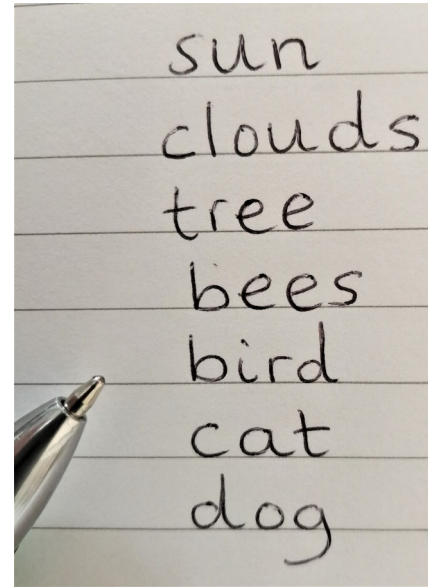 sun
clouds
tree
bees
bird
cat
dog